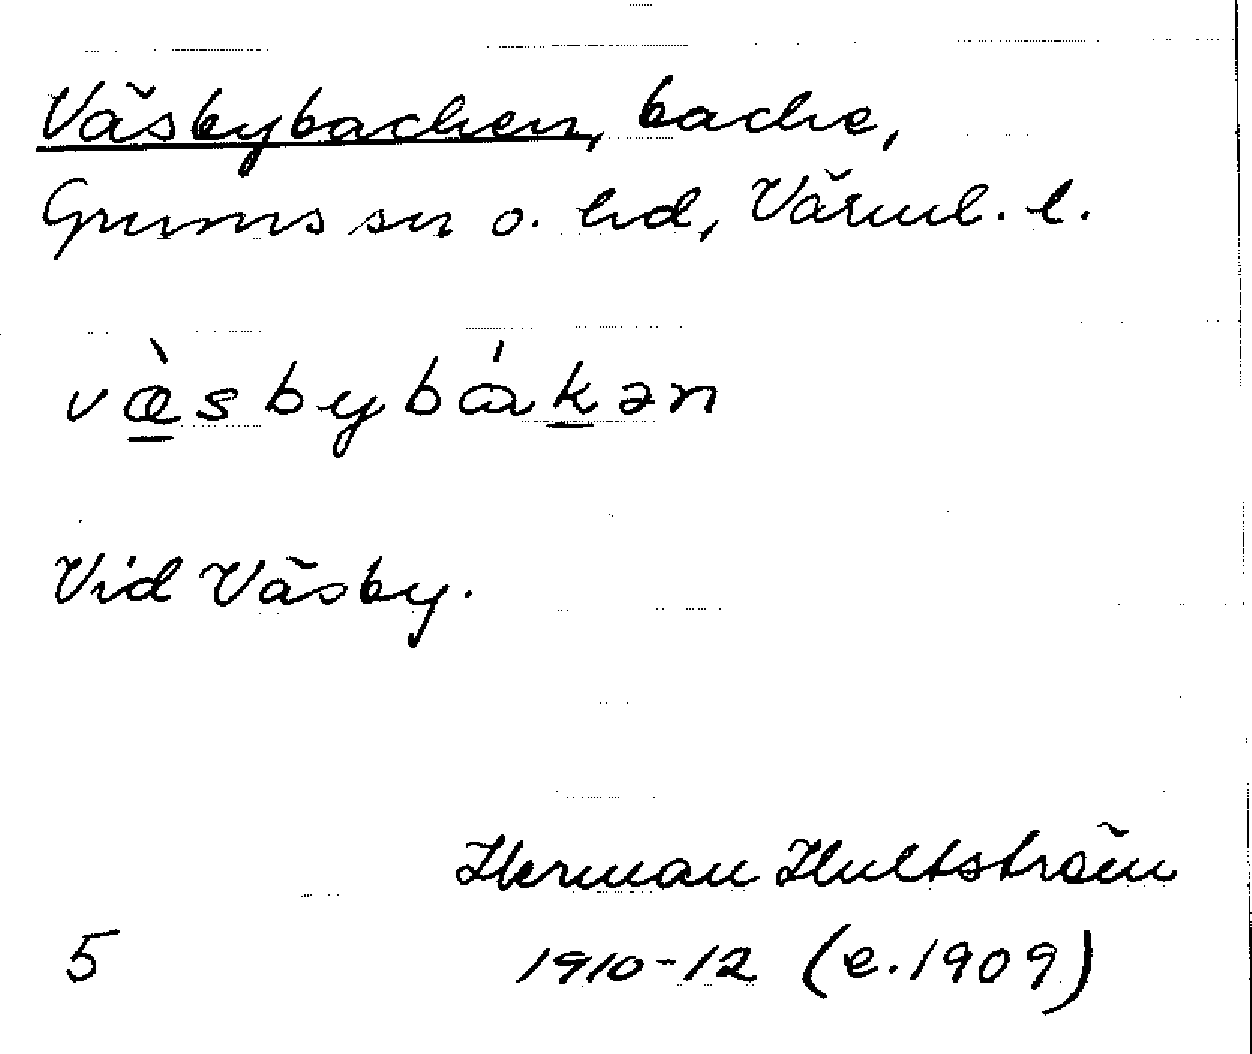 Väsbybacken, backe,
Grums sn o. hd, Värml. l.
væ̀sbybákən
Vid Väsby.
Herman Hultström
5 1910-12 (e. 1909)